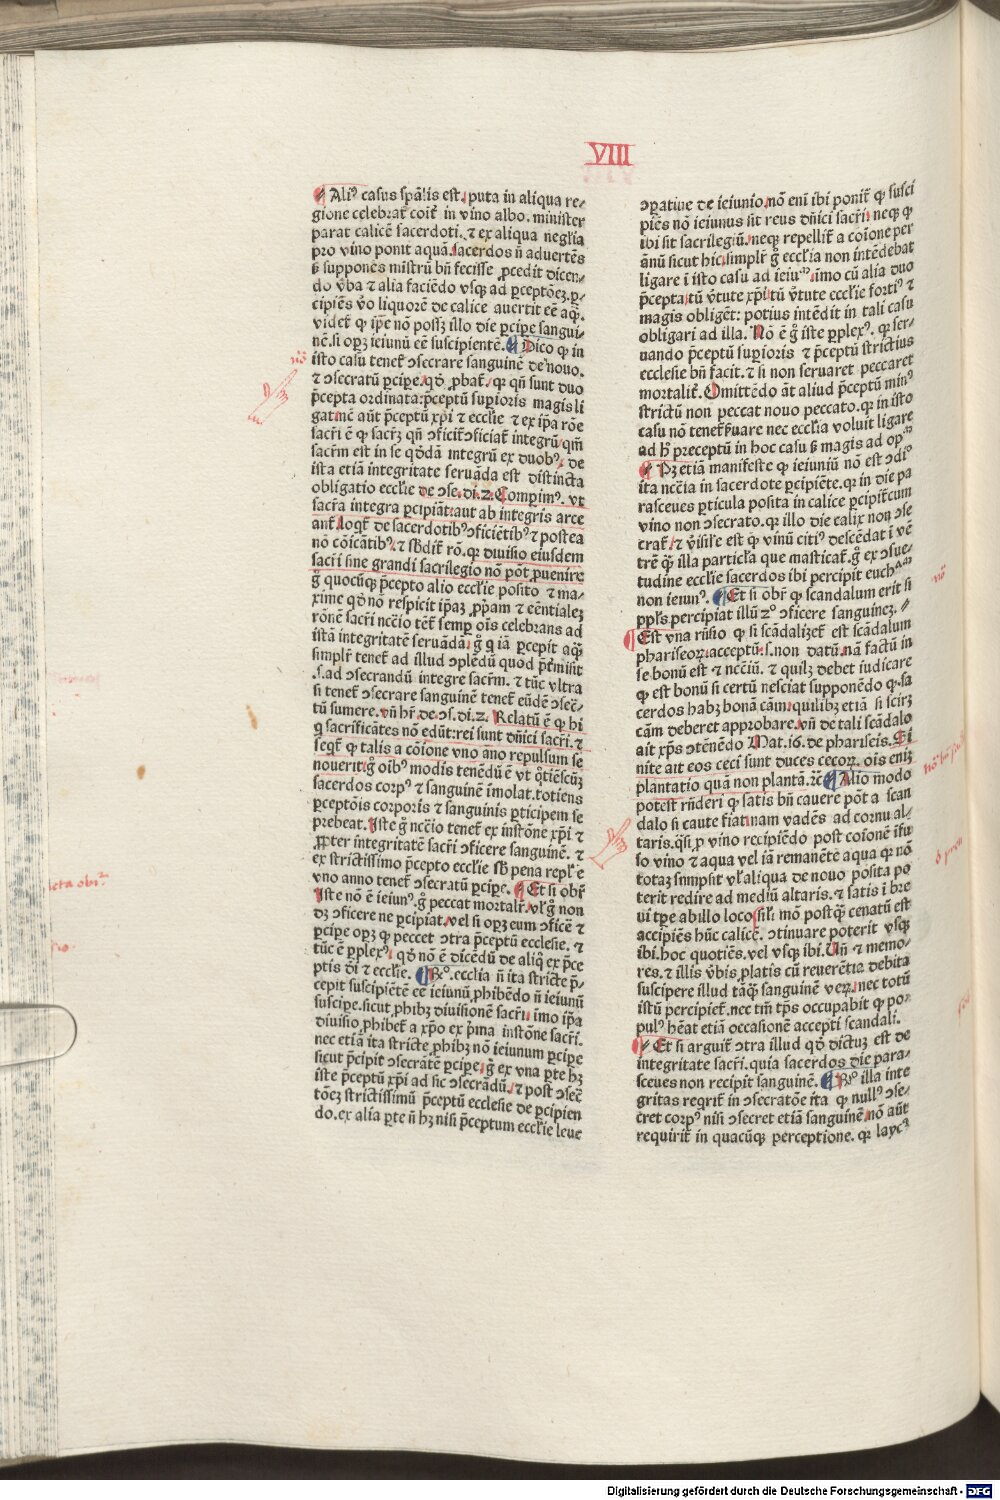 VIII
Aliꝰ casus spālis est. puta in aliqua re⸗
gione celebrat̄ cōit̄ in vino albo. minister
parat calicē sacerdoti. ⁊ ex aliqua negl'ia
pro vino ponit aquā. sacerdos n̄ aduertēs
ß supponēs mīstrū bn̄ fecisse ꝓcedit dicen⸗
do v̓ba ⁊ alia faciēdo vsqꝫ ad ꝑceptōeꝫ. ꝑ⸗
cipiēs v̓o liquorē de calice auertit eē aq̄ꝫ.
videt̄ ꝙ ip̄e nō possꝫ illo die ꝑcipe sangui⸗
nē. si opꝫ ieiunū eē suscipientē. Dico ꝙ in
isto casu tenet̄ ↄsecrare sanguinē de nouo.
⁊ ↄsecratū ꝑcipe. qd̓ ꝓbat̄. qꝛ qn̄ sunt duo
p̄cepta ordinata: p̄ceptū supioris magis li
gat. nē aūt p̄ceptū xp̄i ⁊ eccl'ie ⁊ ex ip̄a rōe
sacr̄i ē ꝙ sacr̄ꝫ qn̄ ↄficit̄ ↄficiat̄ integrū. qm̄
sacr̄m est in se qd̓dā integrū ex duobꝰ. de
ista etiā integritate seruāda est distincta
obligatio eccl'ie de ↄse. di. 2. Compimꝰ. vt
sacr̄a integra ꝑcipiāt: aut ab integris arce
ant̄. loqt̄ de sacerdotibꝰ ↄficiētibꝰ ⁊ postea
nō cōicātibꝰ. ⁊ sb̓dit̄ rō. qꝛ diuisio eiusdem
sacr̄i sine grandi sacrilegio nō pōt ꝓuenire
g̊ quocūqꝫ p̄cepto alio eccl'ie posito ⁊ ma⸗
xime qd̓ nō respicit ip̄aꝫ ꝓp̄am ⁊ eēntialeꝫ
rōnē sacr̄i nc̄cio tēt̄ semp oīs celebrans ad
istā integritatē seruādā. g̊ q iā ꝑcepit aq̄ꝫ
simplr̄ tenet̄ ad illud ↄplēdū quod p̄termisit
.s. ad ↄsecrandū integre sacr̄m. ⁊ tūc vltra
si tenet̄ ↄsecrare sanguinē tenet̄ eūdē ↄsec̄⸗
tū sumere. vn̄ hr̄. de. ↄs. di. 2. Relatū ē ꝙ hi
q sacrificātes nō edūt: rei sunt dn̄ici sacr̄i. ⁊
seqt̄ ꝙ talis a cōione vno āno repulsum se
nouerit. g̊ oībꝰ modis tenēdū ē vt q̊tiēscūqꝫ
sacerdos corpꝰ ⁊ sanguinē īmolat. totiens
ꝑceptōis corporis ⁊ sanguinis ꝑticipem se
prebeat. Iste g̊ nc̄cio tenet̄ ex instōne xp̄i ⁊
ꝓpter integritatē sacr̄i ↄficere sanguinē. ⁊
ex strictissimo p̄cepto eccl'ie sb̓ pena repl'e
vno anno tenet̄ ↄsecratū ꝑcipe. Et si obr̄
Iste nō ē ieiunꝰ. g̊ peccat mortalr̄. vl' g̊ non
dꝫ ↄficere ne ꝑcipiat. vel si opꝫ eum ↄficē ⁊
ꝑcipe opꝫ ꝙ peccet ↄtra p̄ceptū ecclesie. ⁊
tūc ē ꝑplexꝰ. qd̓ nō ē dicēdū de aliq̊ ex p̄ce
ptis d̓i ⁊ eccl'ie. Rº. eccl'ia n̄ ita stricte p̄⸗
cepit suscipiētē eē ieiunū ꝓhibēdo n̄ ieiunū
suscipe. sicut ꝓhibꝫ diuisionē sacr̄i. imo ip̄a
diuisio ꝓhibet̄ a xp̄o ex p̄ma instōne sacr̄i.
nec etiā ita stricte ꝓhibꝫ nō ieiunum ꝑcipe
sicut p̄cipit ↄsecrātē ꝑcipe. g̊ ex vna ꝑte hꝫ
iste p̄ceptū xp̄i ad sic ↄsecrādū. ⁊ post ↄsec̄
tōeꝫ strictissimū p̄ceptū ecclesie de ꝑcipien
do. ex alia ꝑte n̄ hꝫ nisi p̄ceptum eccl'ie leue
ↄparatiue de ieiunio. nō enī ibi ponit̄ ꝙ susci
piēs nō ieiunus sit reus dn̄ici sacr̄i. neqꝫ ꝙ
ibi sit sacrilegiū. neqꝫ repellit̄ a cōione per
ānū sicut hic. simplr̄ g̊ eccl'ia non intēdebat
ligare ī isto casu ad ieiuⁿᵐ. imo cū alia duo
p̄cepta. tū v̓tute xp̄i. tū v̓tute eccl'ie fortiꝰ ⁊
magis obliget̄: potius intēdit in tali casu
obligari ad illa. Nō ē g̊ iste ꝑplexꝰ. qꝛ ser⸗
uando p̄ceptū supioris ⁊ p̄ceptū strictius
ecclesie bn̄ facit. ⁊ si non seruaret peccaret
mortalit̄. Omittēdo āt aliud p̄ceptū minꝰ
strictū non peccat nouo peccato. qꝛ in isto
casu nō tenet̄ ß̄uare nec eccl'ia voluit ligare
ad hͦ preceptū in hoc casu ß magis ad opᵐ
Pꝫ etiā manifeste ꝙ ieiuniū nō est ↄdiº
ita nc̄cia in sacerdote ꝑcipiēte. qꝛ in die pa
rasceues ꝑticula posita in calice ꝑcipit̄ cum
vino non ↄsecrato. qꝛ illo die calix non ↄse
crat̄. ⁊ v̓isil'e est ꝙ vinū citiꝰ descēdat ī vē
trē q̄ꝫ illa particl'a que masticat̄. g̊ ex ↄsue⸗
tudine eccl'ie sacerdos ibi percipit euchᵃᵐ
non ieiunꝰ. Et si obr̄ ꝙ scandalum erit si
ppl's percipiat illū 2º ↄficere sanguineꝫ.
Est vna rn̄sio ꝙ si scādalizet̄ est scādalum
phariseoꝝ. acceptū. s. non datū. nā factū in
se bonū est ⁊ nc̄ciū. ⁊ quilꝫ debet iudicare
ꝙ est bonū si certū nesciat supponēdo ꝙ sa
cerdos habꝫ bonā cām. quilibꝫ etiā si scirꝫ
cām deberet approbare. vn̄ de tali scādalo
ait xp̄s ↄtēnēdo Mat. 16. de phariseis. Si
nite ait eos ceci sunt duces cecoꝝ. oīs eniꝫ
plantatio quā non plantā. ⁊c̄ Alio modo
potest rn̄deri ꝙ satis bn̄ cauere pōt a scan
dalo si caute fiat. nam vadēs ad cornu al⸗
taris. q̄si ꝓ vino recipiēdo post cōionē īfu
so vino ⁊ aqua vel iā remanēte aqua qꝛ nō
totaꝫ sumpsit vl' aliqua de nouo posita po
terit redire ad mediū altaris. ⁊ satis ī bre
ui tp̄e ab illo loco sil'i mō postq̄ꝫ cenatū est
accipiēs hūc calicē. ↄtinuare poterit vsqꝫ
ibi. hoc quotiēs. vel vsqꝫ ibi. Un̄ ⁊ memo⸗
res. ⁊ illis v̓bis ꝓlatis cū reuerētia debita
suscipere illud tāq̄ꝫ sanguinē veꝝ. nec totū
istū percipiet̄. nec tm̄ tp̄s occupabit ꝙ po⸗
pulꝰ hēat etiā occasionē accepti scandali.
Et si arguit̄ ↄtra illud qd̓ dictuꝫ est de
integritate sacr̄i. quia sacerdos die para⸗
sceues non recipit sanguinē. Rº illa inte
gritas reqrit̄ in ↄsecratōe ita ꝙ nullꝰ ↄse⸗
cret corpꝰ nisi ↄsecret etiā sanguinē. nō aūt
requirit̄ in quacūqꝫ perceptione. qꝛ laycꝰ
Digitalisierung gefördert durch die Deutsche Forschungsgemeinschaft - DFG